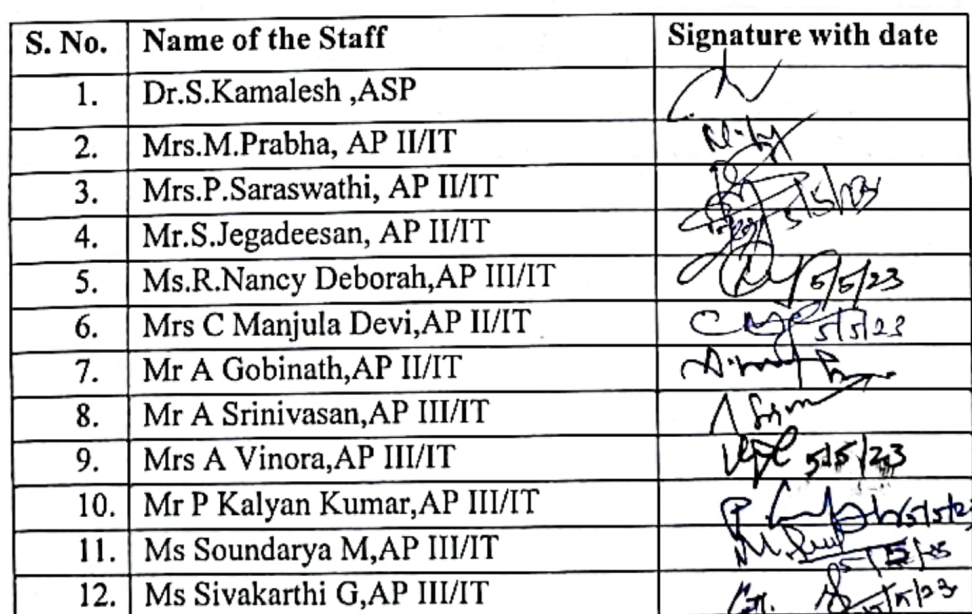 S. No. Name of the Staff Signature with date
1. Dr.S.Kamalesh ,ASP
2. Mrs.M.Prabha, AP II/IT
3. Mrs.P.Saraswathi, AP II/IT 5/5/23
4. Mr.S.Jegadeesan, AP II/IT
5. Ms.R.Nancy Deborah,AP III/IT 5/5/23
6. Mrs C Manjula Devi,AP II/IT 5/5/23
7. Mr A Gobinath,AP II/IT
8. Mr A Srinivasan,AP III/IT
9. Mrs A Vinora,AP III/IT 5/5/23
10. Mr P Kalyan Kumar,AP III/IT
11. Ms Soundarya M,AP III/IT
12. Ms Sivakarthi G,AP III/IT